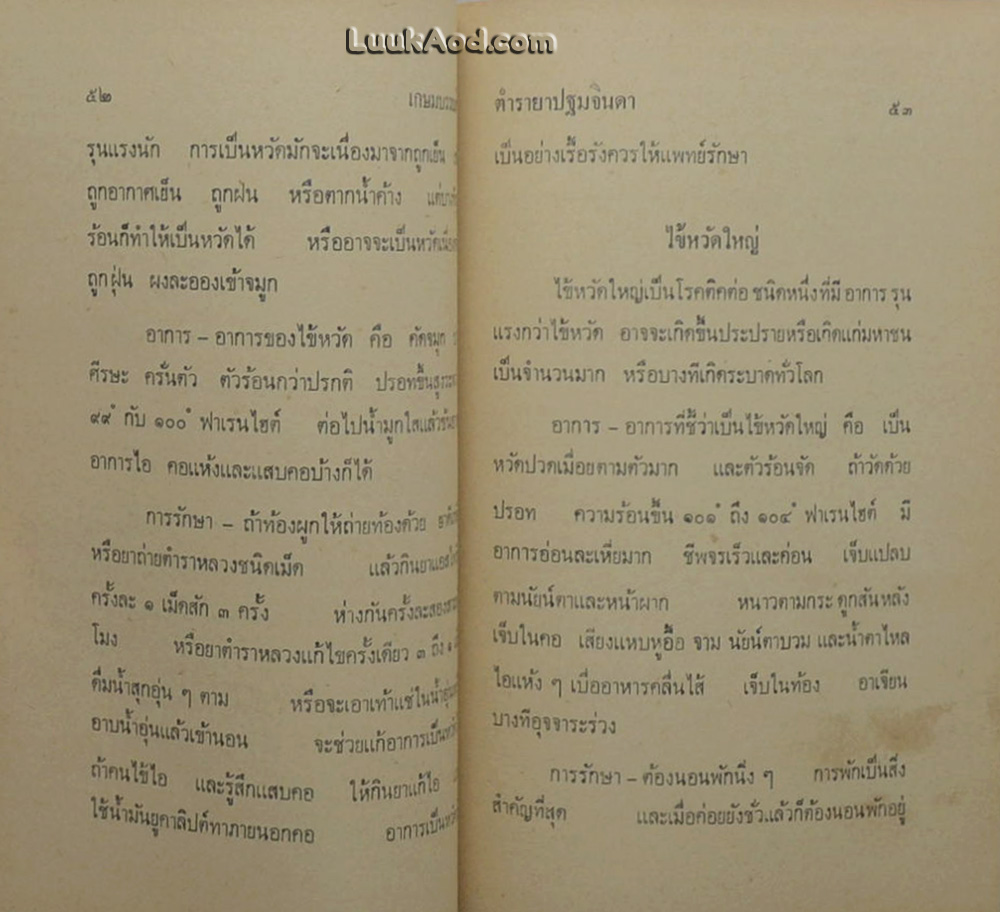 LuukAod.com
๕๒
รุนแรงนัก การเป็นหวัดมักจะเนื่องมาจากถูกเย็น
ถูกอากาศเย็น ถูกฝน หรือตากน้ำค้าง
ร้อนก็ทำให้เป็นหวัดได้ หรืออาจจะเป็นหวัด
ถูกฝุ่น ผงละอองเข้าจมูก
อาการ – อาการของไข้หวัด คือ คัดจมูก
ศีรษะ ครั่นตัว ตัวร้อนกว่าปรกติ ปรอทขึ้น
๙๙ํ กับ ๑๐๐ํ ฟาเรนไฮต์ ต่อไปน้ำมูกใสแล้ว
อาการไอ คอแห้งและแสบคอบ้างก็ได้
การรักษา – ถ้าท้องผูกให้ถ่ายท้องด้วย
หรือยาถ่ายตำราหลวงชนิดเม็ด แล้วกินยา
ครั้งละ ๑ เม็ดสัก ๓ ครั้ง ห่างกันครั้งละ
โมง หรือยาตำราหลวงแก้ไขครั้งเดียว ๓ ถึง
ดื่มน้ำสุกอุ่น ๆ ตาม หรือจะเอาเท้าแช่ใน
อาบน้ำอุ่นแล้วเข้านอน จะช่วยแก้อาการเป็น
ถ้าคนไข้ไอ และรู้สึกแสบคอ ให้กินยาแก้ไอ
ใช้น้ำมันยูคาลิปต์ทาภายนอกคอ อาการเป็น
ตำรายาปฐมจินดา ๕๓
เป็นอย่างเรื้อรังควรให้แพทย์รักษา
ไข้หวัดใหญ่
ไข้หวัดใหญ่เป็นโรคติดต่อ ชนิดหนึ่งที่มี อาการ รุน
แรงกว่าไข้หวัด อาจจะเกิดขึ้นประปรายหรือเกิดแก่มหาชน
เป็นจำนวนมาก หรือบางทีเกิดระบาดทั่วโลก
อาการ – อาการที่ชี้ว่าเป็นไข้หวัดใหญ่ คือ เป็น
หวัดปวดเมื่อยตามตัวมาก และตัวร้อนจัด ถ้าวัดด้วย
ปรอท ความร้อนขึ้น ๑๐๑ํ ถึง ๑๐๔ํ ฟาเรนไฮต์ มี
อาการอ่อนละเหี่ยมาก ชีพจรเร็วและค่อน เจ็บแปลบ
ตามนัยน์ตาและหน้าผาก หนาวตามกระดูกสันหลัง
เจ็บในคอ เสียงแหบหูอื้อ จาม นัยน์ตาบวม และน้ำตาไหล
ไอแห้ง ๆ เบื่ออาหารคลื่นไส้ เจ็บในท้อง อาเจียน
บางทีอุจจาระร่วง
การรักษา – ต้องนอนพักนิ่ง ๆ การพักเป็นสิ่ง
สำคัญที่สุด และเมื่อค่อยยังชั่วแล้วก็ต้องนอนพักอยู่